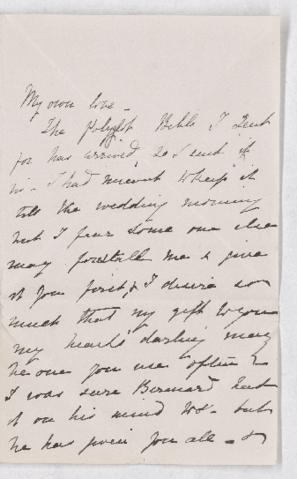 My own love -
The Polyglot Bible I sent
for has arrived, so I send it
in - I had meant to keep it
till the wedding morning
but I fear some one else
may forestall me & give
it you first, & I desire so
much that my gift to you
my heart's darling may
be one you use often &
I was sure Bernard had
it on his mind too - but
he has given you all - &